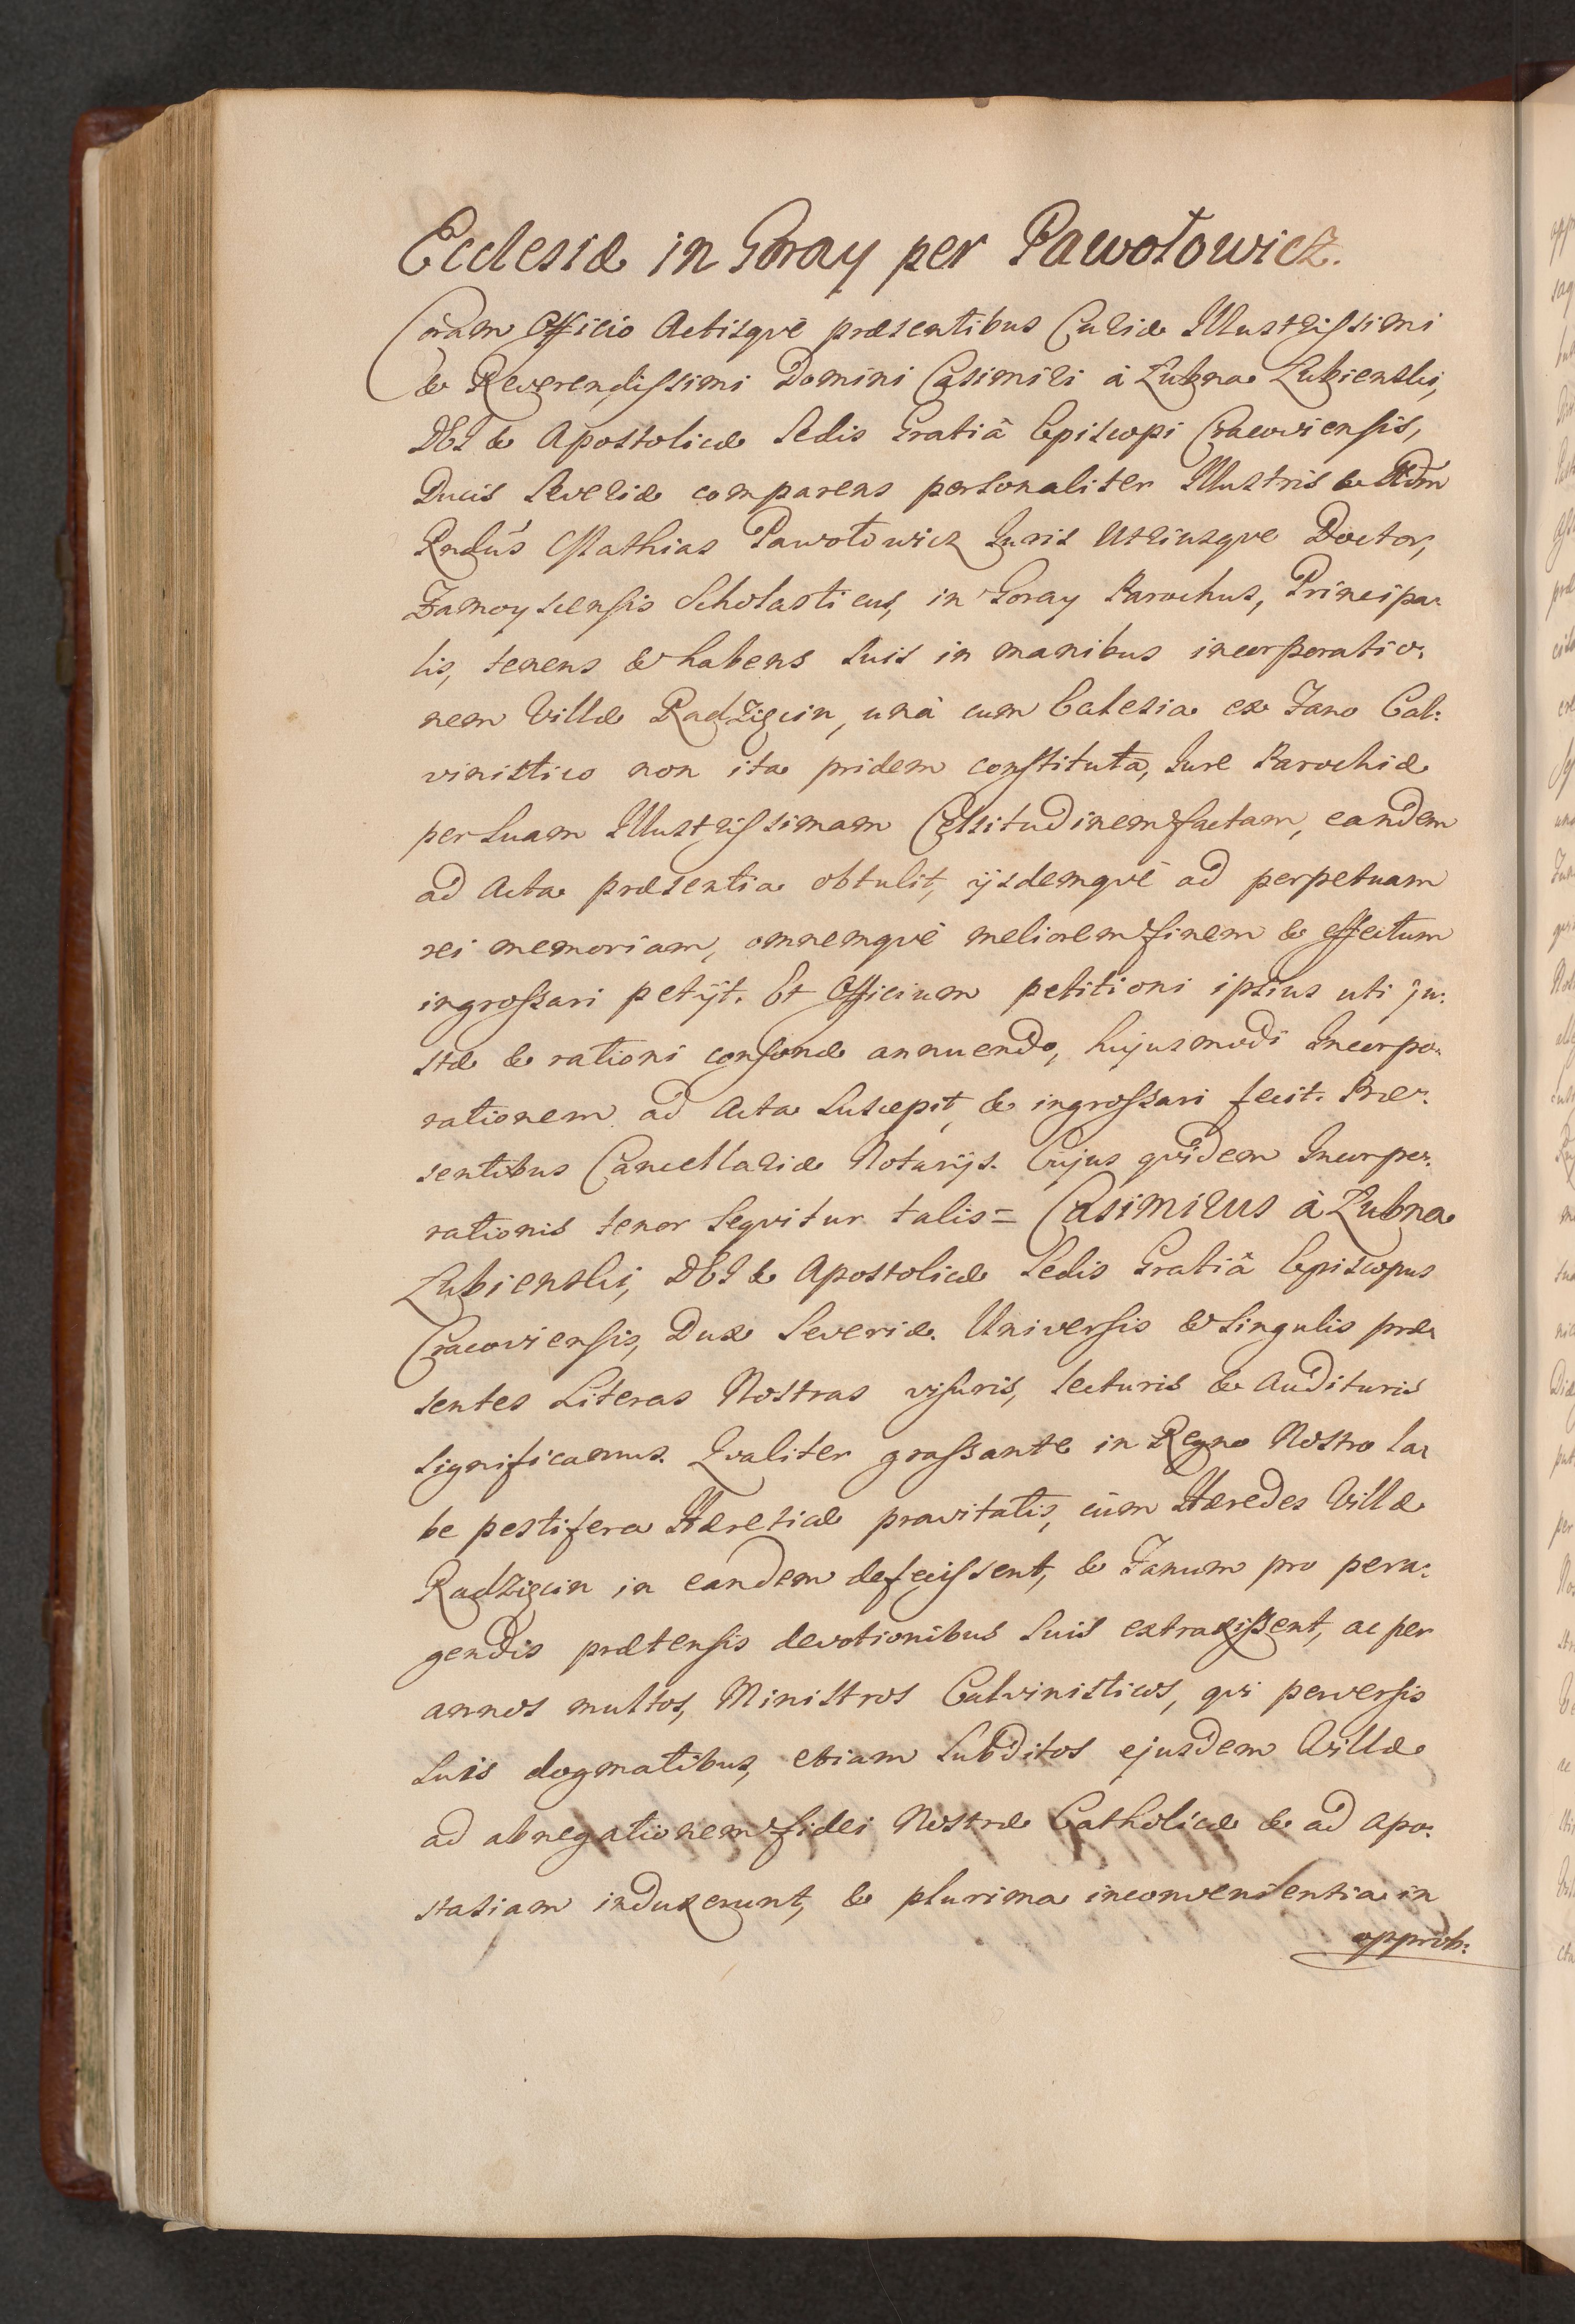 Ecclesiæ in Goray per Pawołowicz.
Coram Officio Actisqvè præsentibus Curiæ Illustrissimi
& Reverendissimi Domini Casimiri à Łubna Łubienski,
DEI & Apostolicæ Sedis Gratiâ Episcopi Cracoviensis,
Ducis Severiæ comparens personaliter Illustris & Adm̃
Rndús Mathias Pawołowicz Juris Utriusqve Doctor,
Zamoyscensis Scholasticus, in Goray Parochus, Principa-
lis, tenens & habens suis in manibus incorporatio-
nem Villæ Radzięcin, unà cum Ecclesia ex Fano Cal-
vinistico non ita pridem constituta, Jure Parochiæ
per Suam Illustrissimam Celsitudinem factam, eandem
ad Acta præsentia obtulit, ijsdemqvè ad perpetuam
rei memoriam, omnemqvè meliorem finem & effectum
ingrossari petÿt. Et Officium petitioni ipsius uti ju-
stæ & rationi consonæ annuendo, hujusmodi Incorpo-
rationem ad Acta suscepit, & ingrossari fecit. Præ-
sentibus Cancellariæ Notarijs. Cujus qvidem Incorpo-
rationis tenor seqvitur talis = Casimirus à Łubna
Łubienski, DEI & Apostolicæ Sedis Gratiâ Episcopus
Cracoviensis, Dux Severiæ. Universis & singulis præ-
sentes Literas Nostras visuris, lecturis & audituris
significamus. Qvaliter grassante in Regno Nostro la-
be pestifera Hæreticæ pravitatis, cùm Hæredes Villæ
Radzięcin in eandem defecissent, & Fanum pro pera-
gendis prætensis devotionibus suis extraxissent, ac per
annos multos, Ministros Calvinisticos, qvi perversis
suis dogmatibus, etiam Subditos ejusdem Villæ
ad abnegationem fidei Nostræ Catholicæ & ad apo-
stasiam induxerunt, & plurima inconvenientia in
opprob: